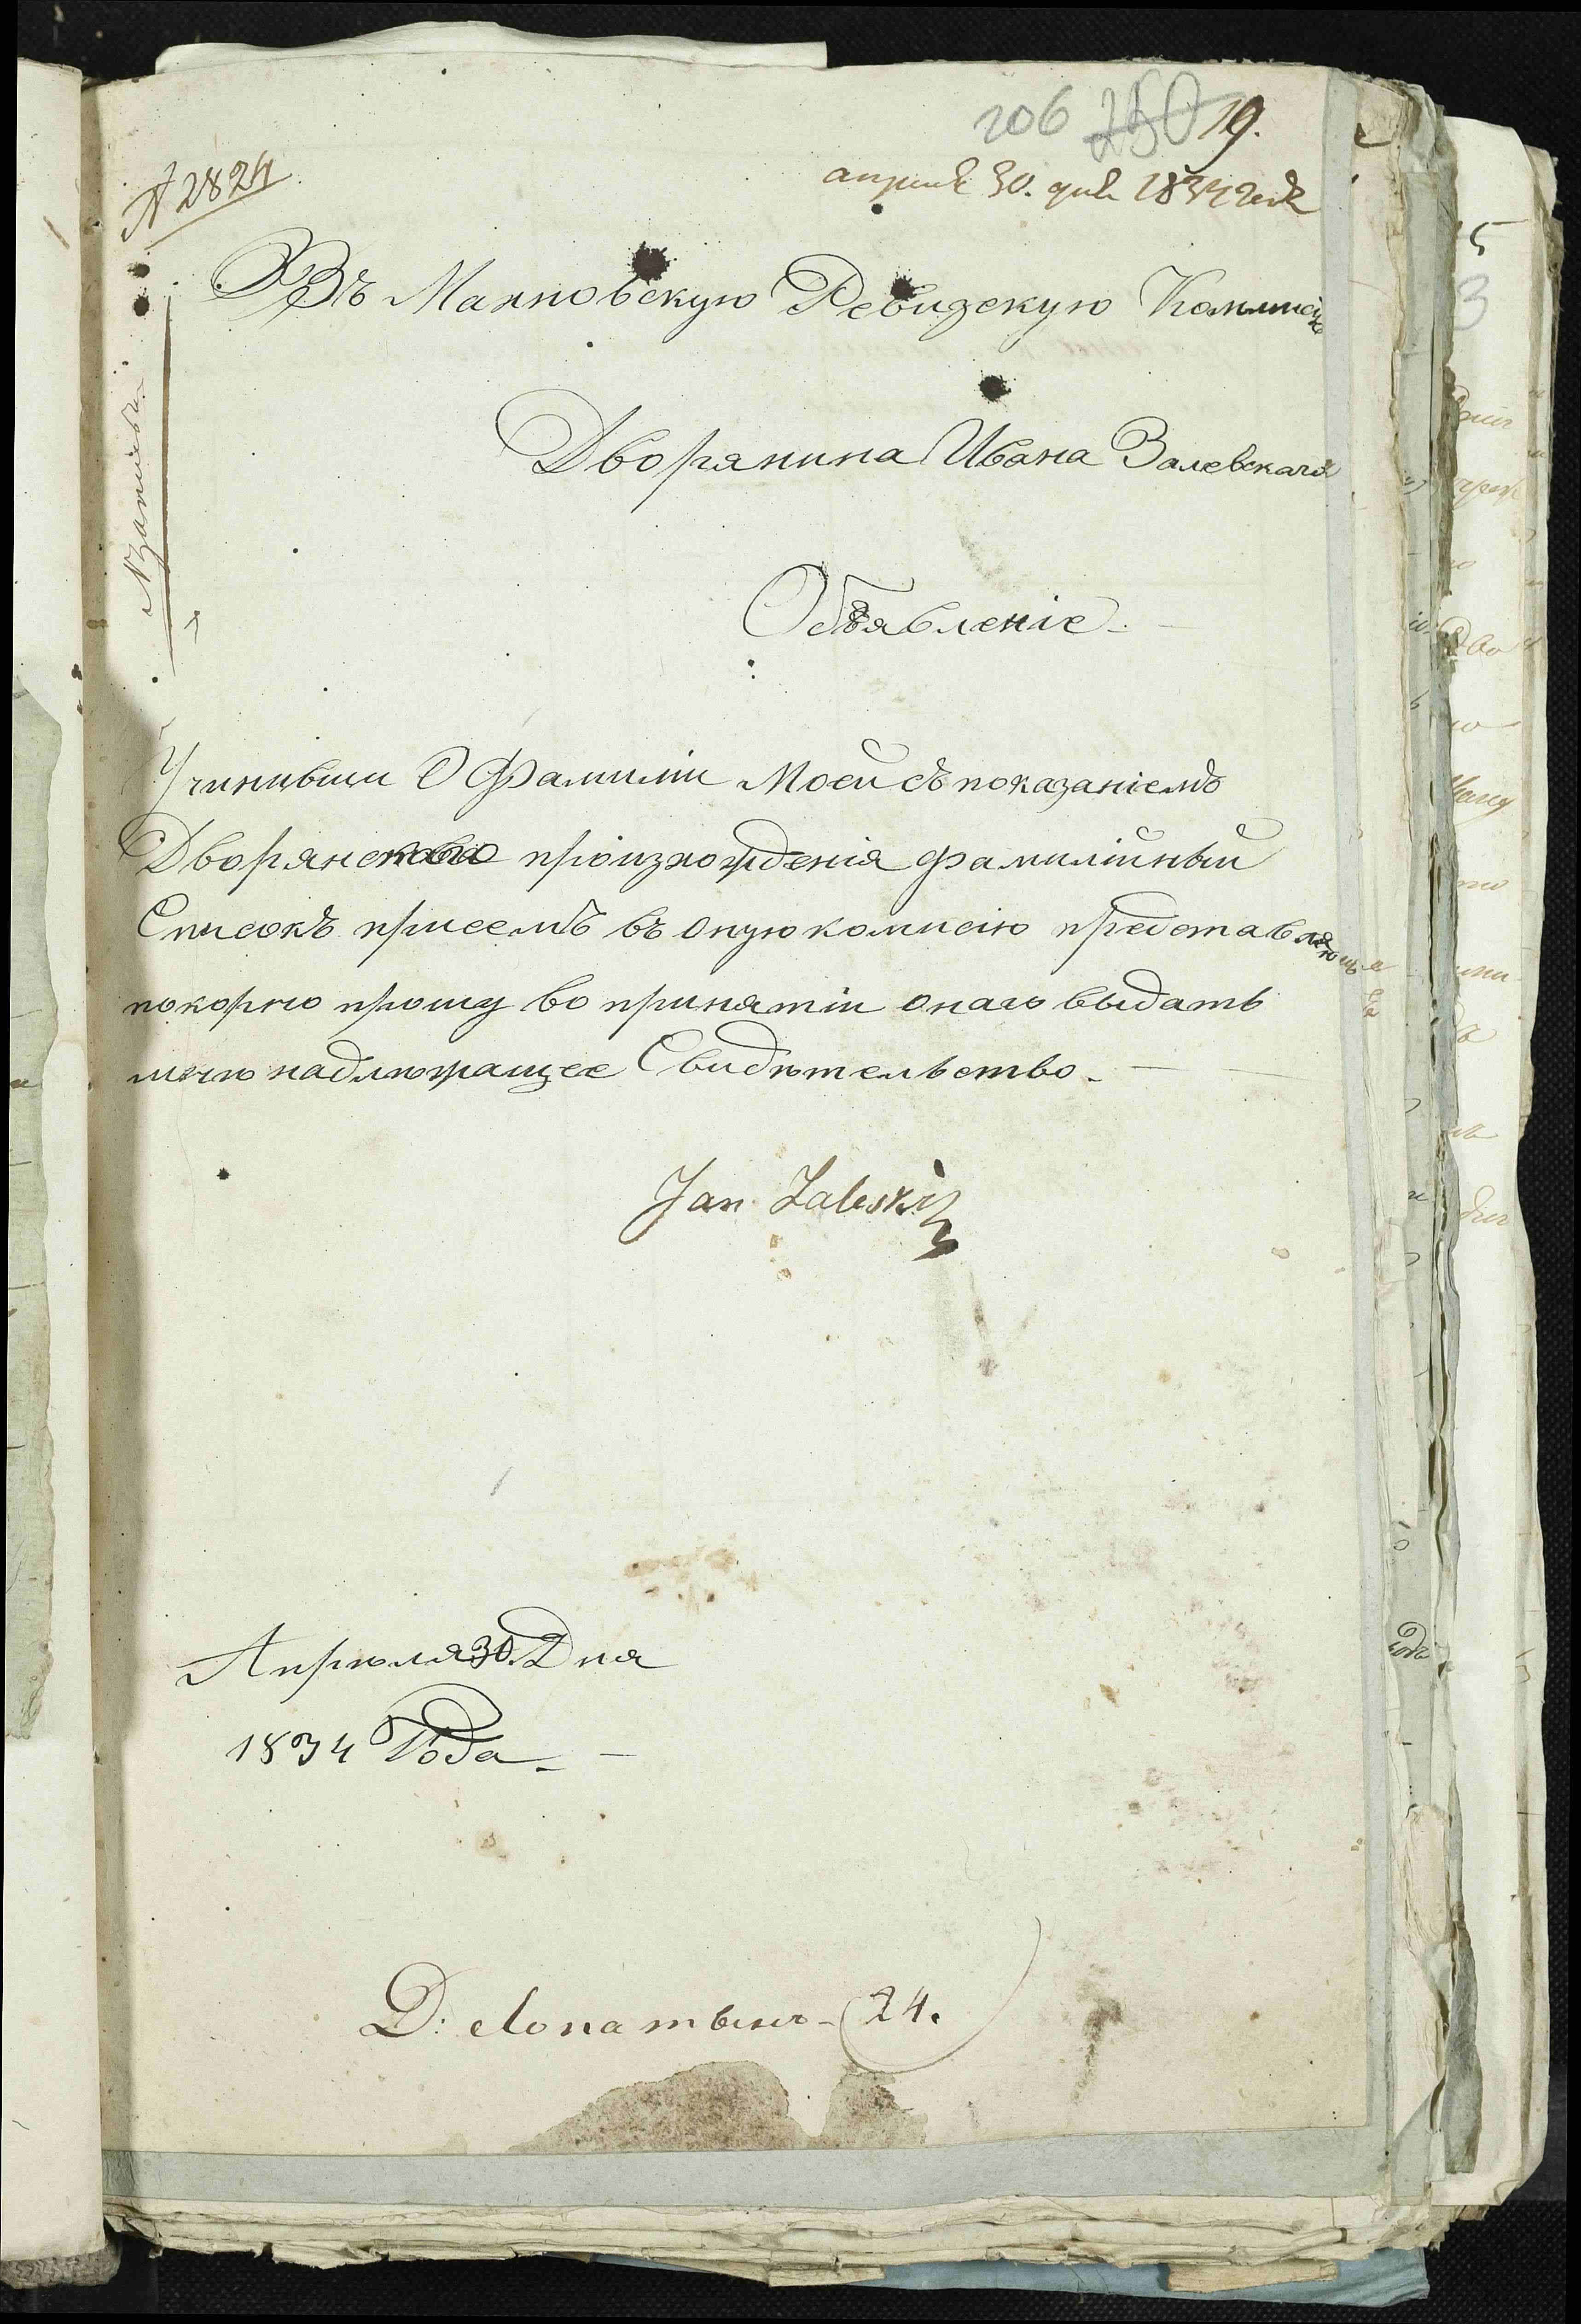 106 250 19.
№ 2824
апреля 30. дня 1834 года
Въ Махновскую Ревизскую Коммисію
Дворянина Ивана Залевскаго
Объявленіе.
Учинивши О Фамиліи Моей съ показаніемъ
Дворянскаго произхожденія фамилійный
Списокъ присемъ въ Оную комисію представляющи
покорно прошу во принятіи онаго выдать
мнѣ надлѣжащее Свидѣтельство.
Jan Zaleski
Апрѣля 30. Дня
1834 Года
24.